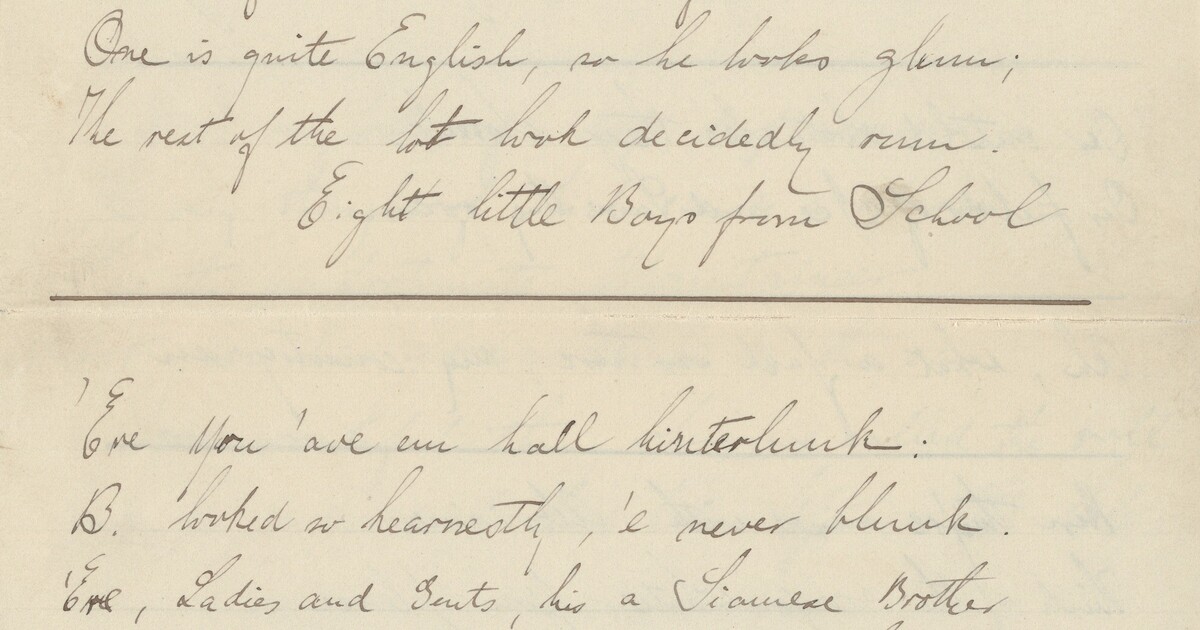 One is quite English, so he looks glum;
The rest of the lot look decidedly rum.
Eight little Boys from School
'Ere you 'ave em hall hinterlunk:
B. looked so hearnestly, 'e never blunk.
'Ere, Ladies and Gents, his a Siamese Brother